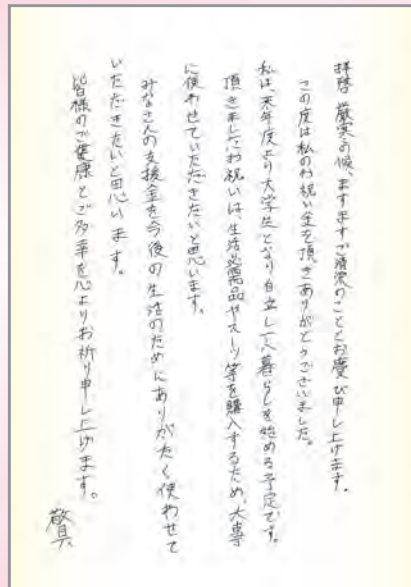 拝啓 厳寒の候、ますますご清栄のこととお慶び申し上げます。
この度は私のお祝い金を頂きありがとうございました。
私は、来年度より大学生となり自立し一人暮らしを始める予定です。
頂きましたお祝いは、生活必需品やスーツ等を購入するため、大事
に使わせていただきたいと思います。
みなさんの支援金を今後の生活のためにありがたく使わせて
いただきたいと思います。
皆様のご健康とご多幸を心よりお祈り申し上げます。
敬具